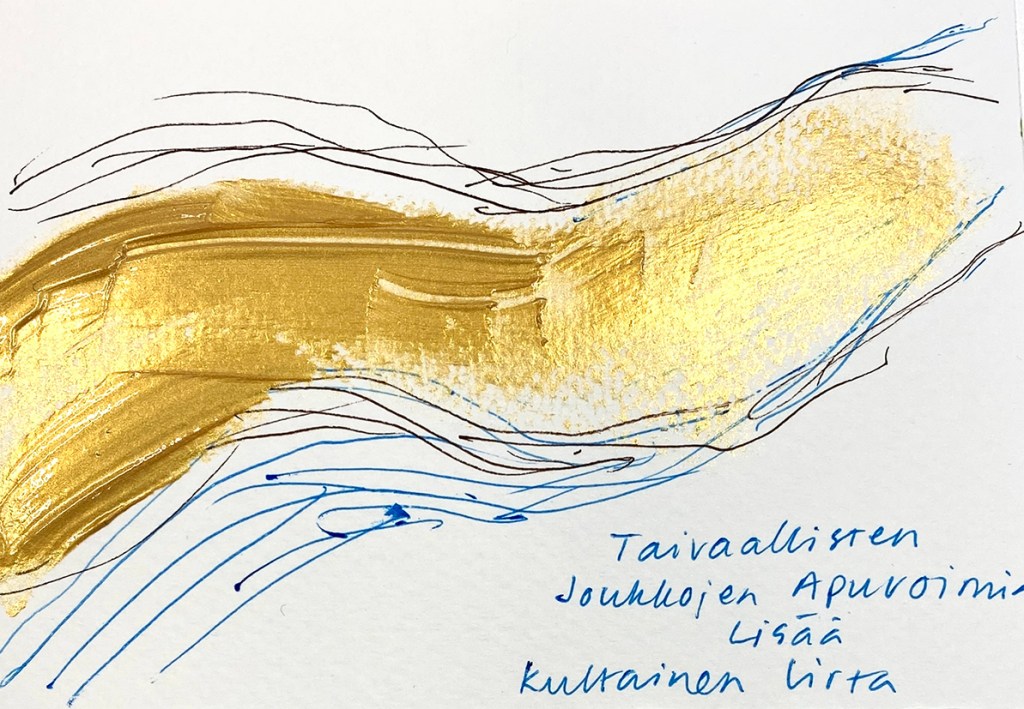 Taivaallisten
Joukkojen Apuvoimia
Lisää
Kultainen Virta